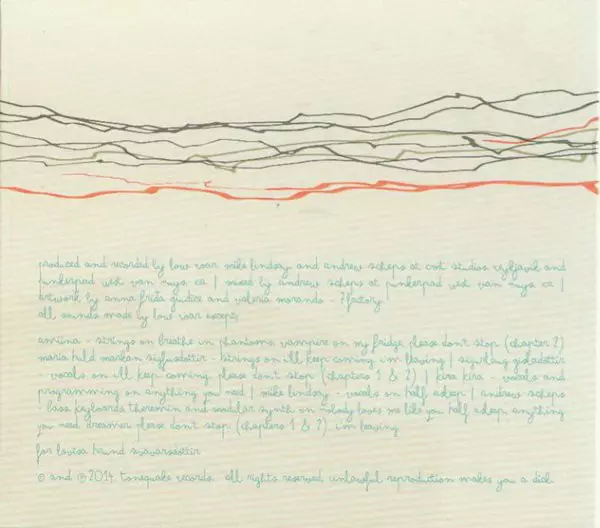 produced and recorded by low roar mike lindsay and andrew scheps at cnt studios reykjavik and
punkerpad west van nuys ca | mixed by andrew scheps at punkerpad west van nuys ca |
artwork by anna frida giudice and valeria morando - ?factory
all sounds made by low roar except:
amiina - strings on breathe in phantoms vampire on my fridge please don't stop (chapter 2)
maria huld markan sigfusdottir - strings on i'll keep coming i'm leaving | sigurlaug gisladottir
- vocals on i'll keep coming please don't stop (chapters 1 & 2) | kira kira - vocals and
programming on anything you need | mike lindsay - vocals on half asleep | andrew scheps
- bass keyboards theremin and modular synth on nobody loves me like you half asleep anything
you need dreamer please don't stop (chapters 1 & 2) i'm leaving
for lovisa hrund svavarsdottir
© and ℗ 2014 tonequake records. all rights reserved. unlawful reproduction makes you a dick.